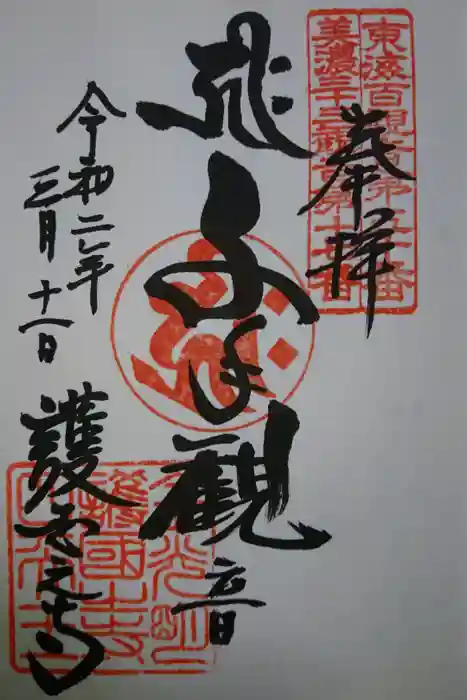 奉拝
東海百観音第五十番
美濃三十三観音第十七番
千手観音
令和二年
三月十一日
護国之寺